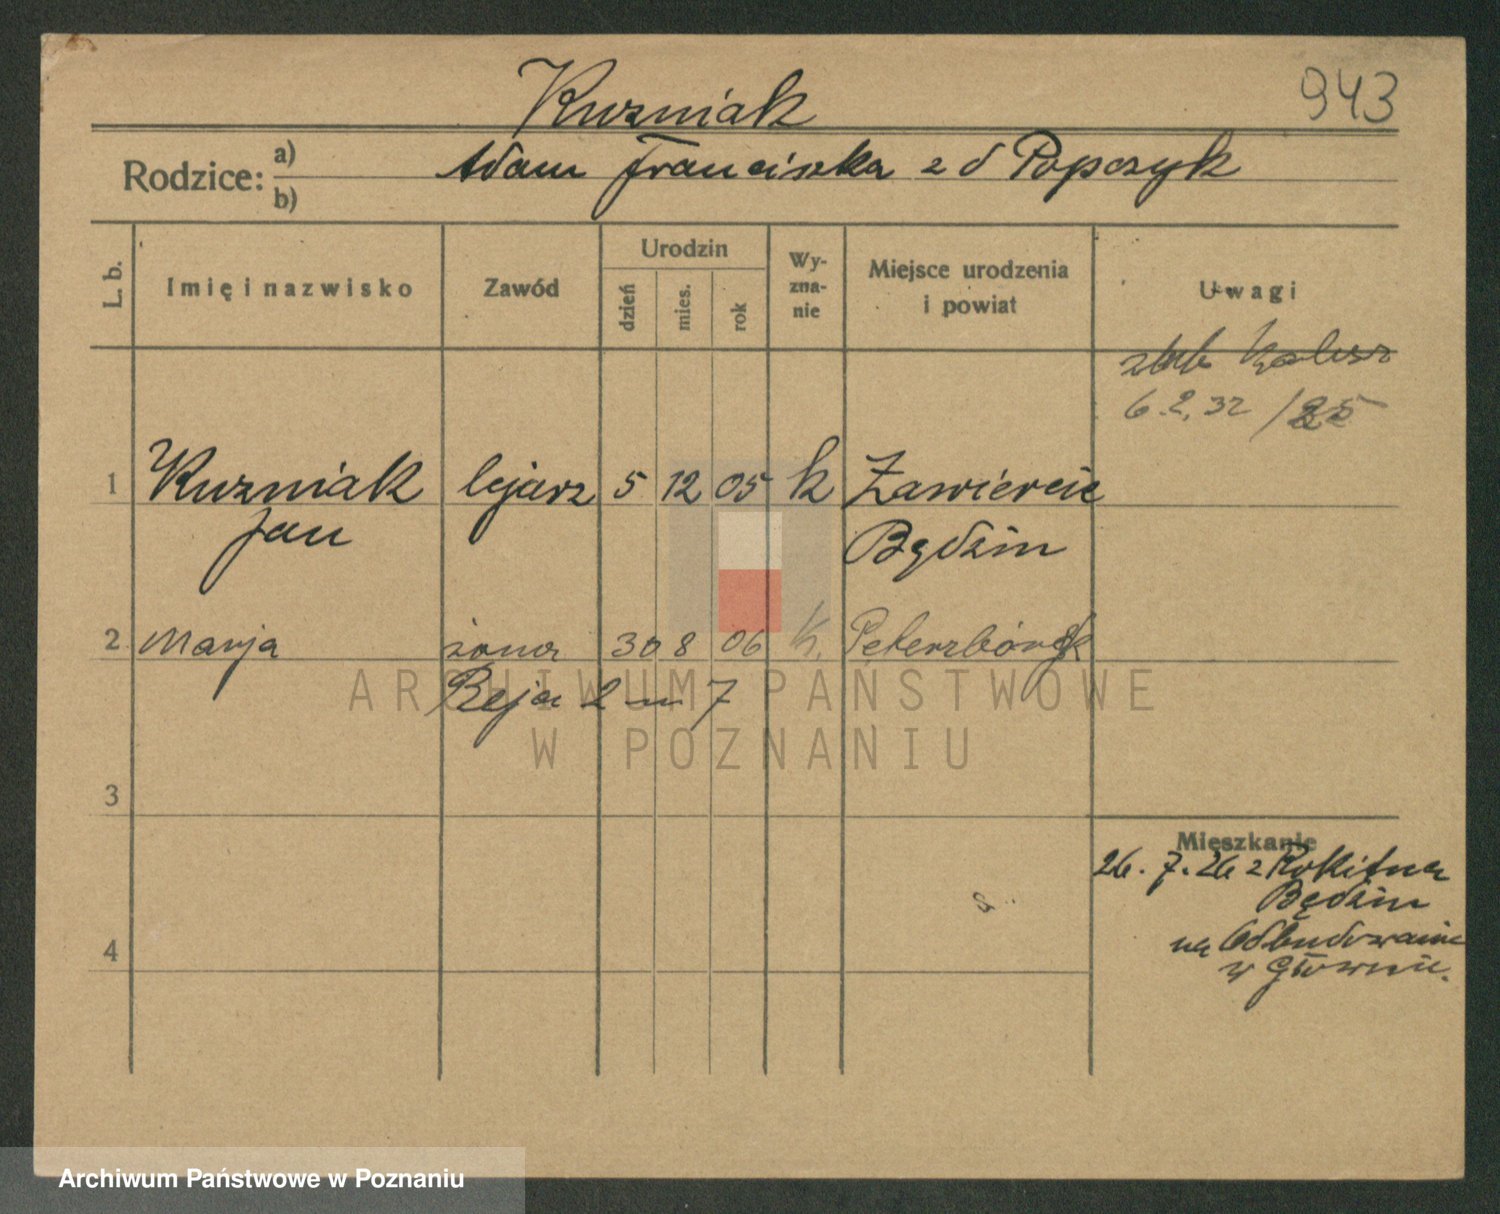 Kuzniak
943
Rodzice: a) b)
Adam Franciszka z d Popczyk
L. b.
Imię i nazwisko
Zawód
Urodzin
dzień
mies.
rok
Wy-
zna-
nie
Miejsce urodzenia
i powiat
Uwagi
6.2.32 / 25
1 Kuzniak lejarz 5 12 05 k Zawiercie
Jan Będzin
2 Marja żona 30 8 06 k.
Reja 2 m 7
ARCHIWUM PAŃSTWOWE
W POZNANIU
3
Mieszkanie
26.7.26 z Rokitna
Będzin
na Odbudowanie
w Głownie.
4
Archiwum Państwowe w Poznaniu